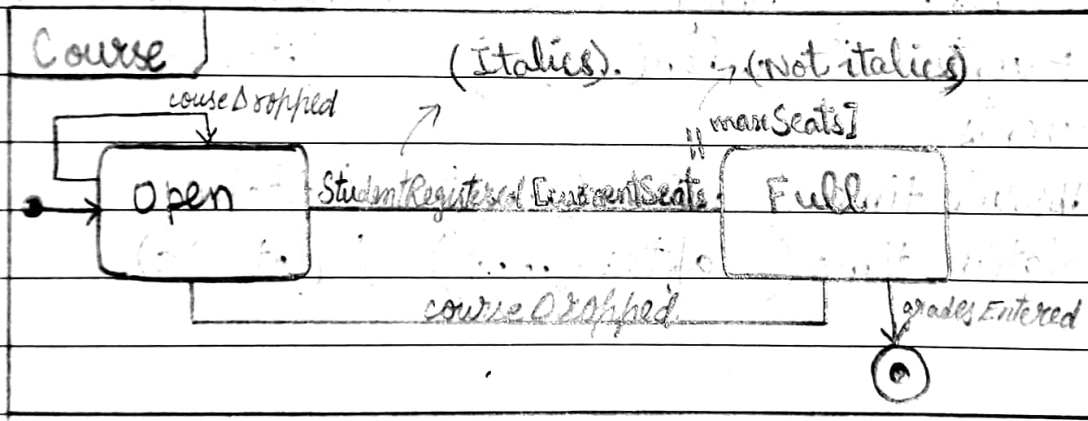 Course
(Italics).
(Not italics)
couseDropped
maxSeats]
Open
StudentRegistered [currentSeats
=
Full
courseDropped
gradesEntered